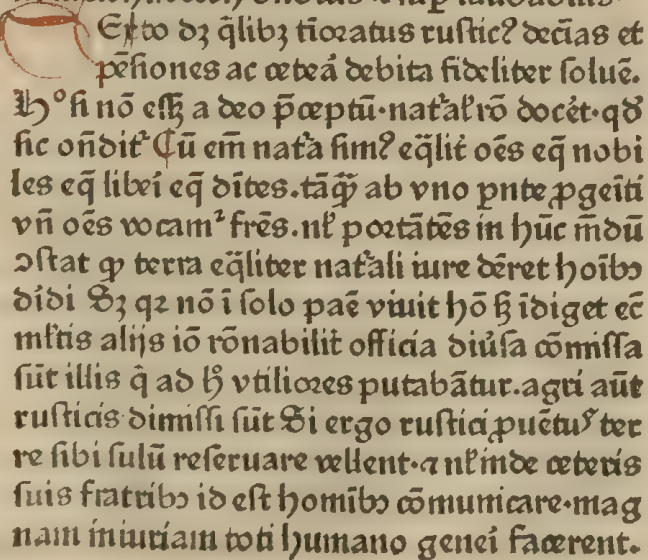 Erto dꝫ q̄libꝫ tīoratus rustic⁹ decīas et
pēsiones ac ceteᷓa debita fideliter soluē.
H° si nō eēꝫ a deo p̄ceptū·nat᷑al̓ rō docēt·qđ
sic oñdit᷑ Cū em̄ nat᷑a sim⁹ eq̄lit̓ oēs eq̄ nobi
les eq̄ libei eq̄ dītes.tāꝙ̄ ab vno pn̄te ꝓgeīti
vn̄ oēs vocam⁹ frēs.nl̓ portātēs in hūc m̄dū
ꝯstat ꝙ terra eq̄liter nat᷑ali iure dēret hoībꝰ
dīdi Sꝫ qꝛ nō ī solo paē viuit hō sꝫ īdiget ec̄
ml̓tis alijs iō rōnabilit̓ officia diu̓sa cōmissa
sūt illis q̄ ad h̄ vtiliores putabātur.agri aūt
rusticis dimissi sūt Si ergo rustici ꝓuētuꝰ ter
re sibi sulū reseruare vellent·⁊ nl̓ inde ceteris
suis fratribꝰ id est homībꝰ cōmunicare·mag
nam iniuriam toti humano genei facerent.